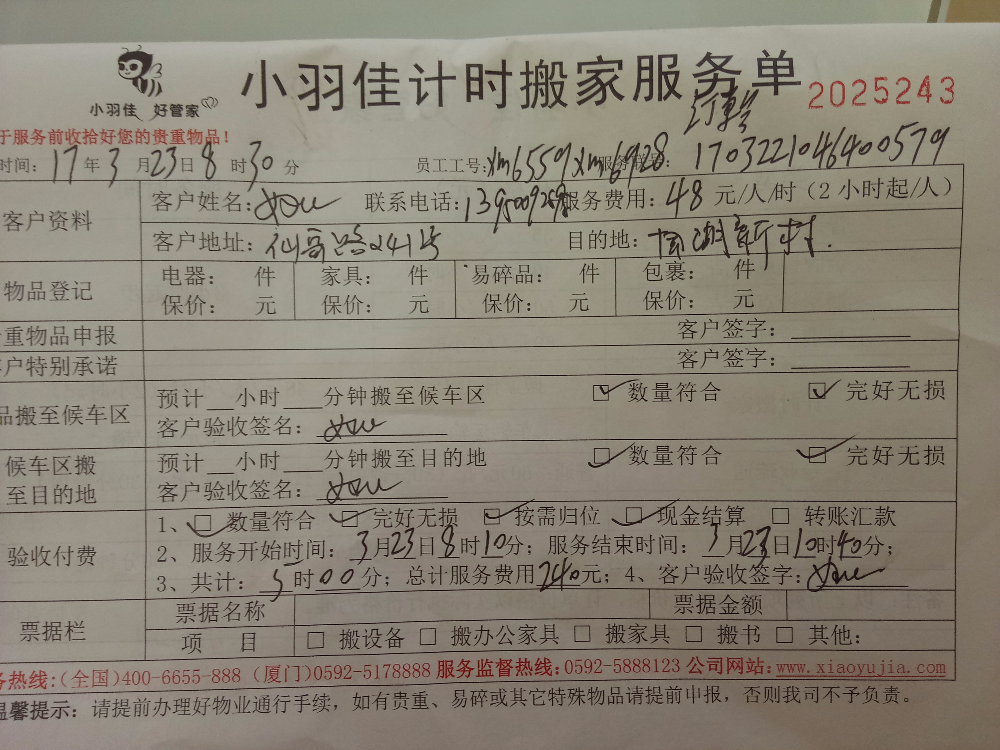 小羽佳 好管家
小羽佳计时搬家服务单
2025243
于服务前收拾好您的贵重物品!
订单号
时间: 17 年 3 月 23 日 8 时 30 分 员工工号: xm6559 xm6928 1703221046400579
客户资料
客户姓名: 联系电话: 服务费用: 48 元/人/时(2小时起/人)
客户地址: 仙岳路241号 目的地: 新村.
物品登记
电器: 件 家具: 件 易碎品: 件 包裹: 件
保价: 元 保价: 元 保价: 元 保价: 元
重物品申报 客户签字:
户特别承诺 客户签字:
品搬至候车区
预计__小时___分钟搬至候车区 ☑ 数量符合 ☑ 完好无损
客户验收签名:
候车区搬
至目的地
预计__小时___分钟搬至目的地 ☑ 数量符合 ☑ 完好无损
客户验收签名:
验收付费
1、☑ 数量符合 ☑ 完好无损 ☑ 按需归位 ☑ 现金结算 □ 转账汇款
2、服务开始时间: 3月23日8时10分; 服务结束时间: 3月23日10时40分;
3、共计: 5时00分; 总计服务费用240元; 4、客户验收签字:
票据栏
票据名称 票据金额
项 目 □ 搬设备 □ 搬办公家具 □ 搬家具 □ 搬书 □ 其他:
务热线:(全国)400-6655-888 (厦门)0592-5178888 服务监督热线:0592-5888123 公司网站:www.xiaoyujia.com
温馨提示: 请提前办理好物业通行手续, 如有贵重、易碎或其它特殊物品请提前申报, 否则我司不予负责。